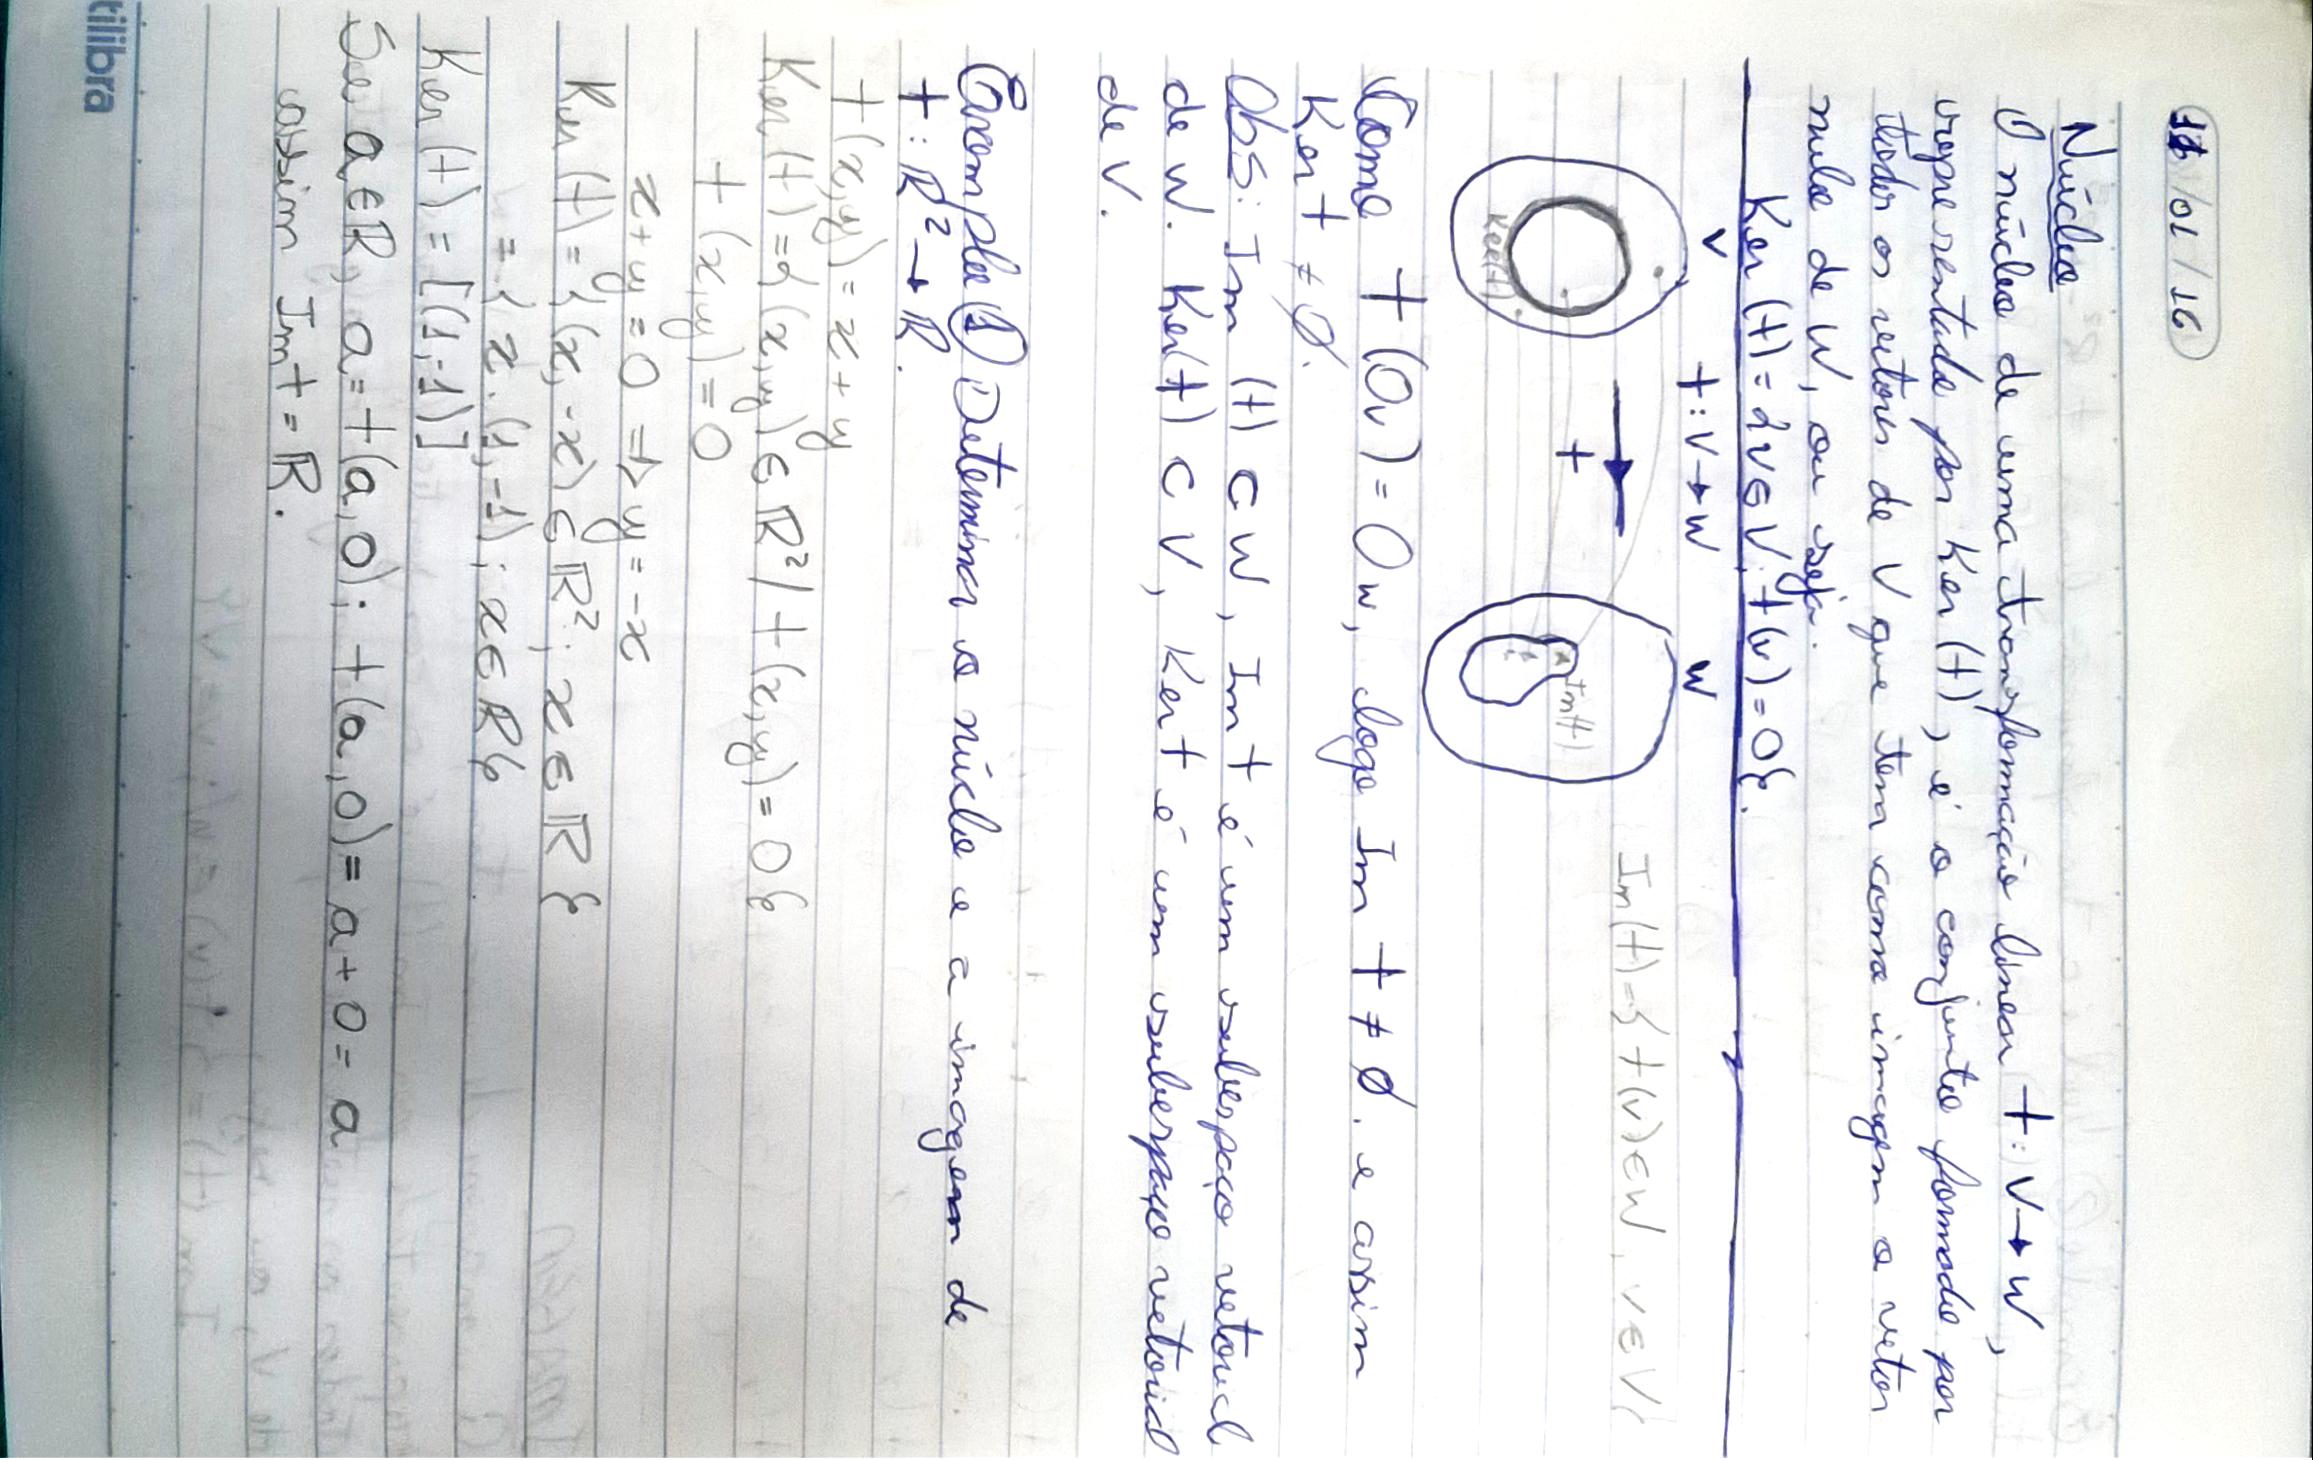 11/01/16
Núcleo
O núcleo de uma transformação linear t: V→W,
representado por Ker(t), é o conjunto formado por
todos os vetores de V que tem como imagem o vetor
nulo de W, ou seja.
Ker (t) = {v ∈ V; t(v) = 0}.
V t: V→W W
Im(t) = { t(v) ∈ W, v ∈ V}
t
Im(t)
Ker(t)
Como t(0v) = 0w, logo Im t ≠ ∅. e assim
Ker t ≠ ∅.
Obs: Im (t) ⊂ W, Im t é um subespaço vetorial
de W. Ker(t) ⊂ V, Ker t é um subespaço vetorial
de V.
Exemplo ① Determinar o núclo e a imagem de
t: ℝ² → ℝ.
t(x,y) = x + y
Ker (t) = {(x,y) ∈ ℝ² / t(x,y) = 0}
t (x,y) = 0
x + y = 0 ⇒ y = -x
Ker (t) = {(x, -x) ∈ ℝ²; x ∈ ℝ}
= { x. (1,-1); x ∈ ℝ}
Ker (t) = [(1,-1)]
Se a ∈ ℝ, a = t(a,0); t(a,0) = a + 0 = a
assim Im t = ℝ.
tilibra